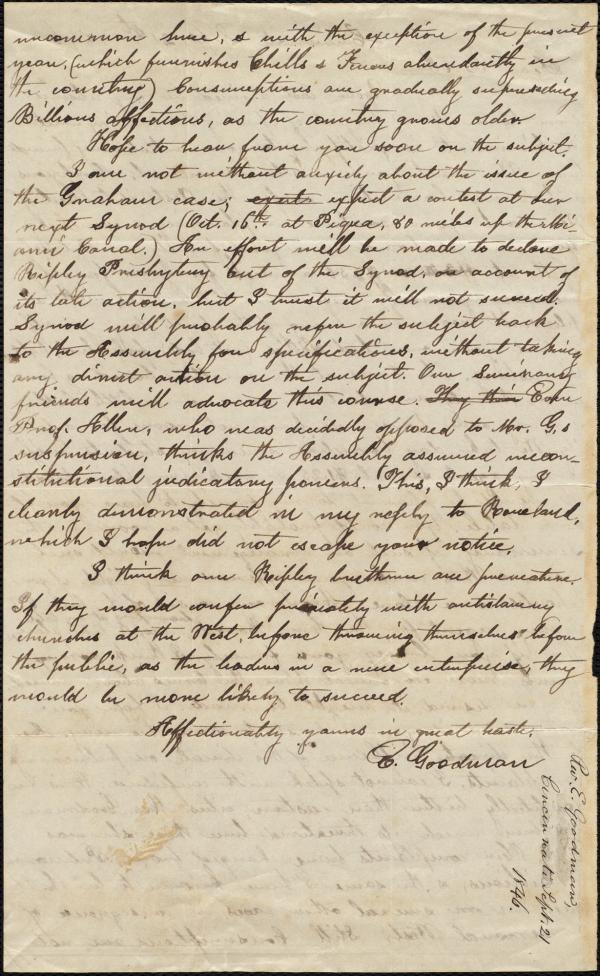 uncommon here, & with the exception of the present
year, (which furnishes Chills & Fevers abundantly in
the country) Consumptions are gradually superseding
Billious affections, as the country grows older.
Hope to hear from you soon on the subject.
I am not without anxiety about the issue of
the Graham case; expect expect a contest at our
next Synod (Oct. 16th. at Piqua, 80 miles up the Mi-
ami Canal.) An effort will be made to declare
Ripley Presbytery out of the Synod, on account of
its late action, but I trust it will not succeed.
Synod will probably refer the subject back
to the Assembly for specifications, without taking
any direct action on the subject. Our Seminary
friends will advocate this course. They think Even
Prof. Allen, who was decidedly opposed to Mr. G.s
suspension, thinks the Assembly assumed incon-
stitutional judicatory powers. This, I think, I
clearly demonstrated in my reply to Rowland,
which I hope did not escape your notice.
I think our Ripley brethren are premature.
If they would confer privately with antislavery
churches at the West, before throwing themselves before
the public, as the leaders in a new enterprise, they
would be more likely to succeed.
Affectionately yours in great haste.
E. Goodman
Rev. E. Goodman,
Cincinnati Sept. 21
1846.